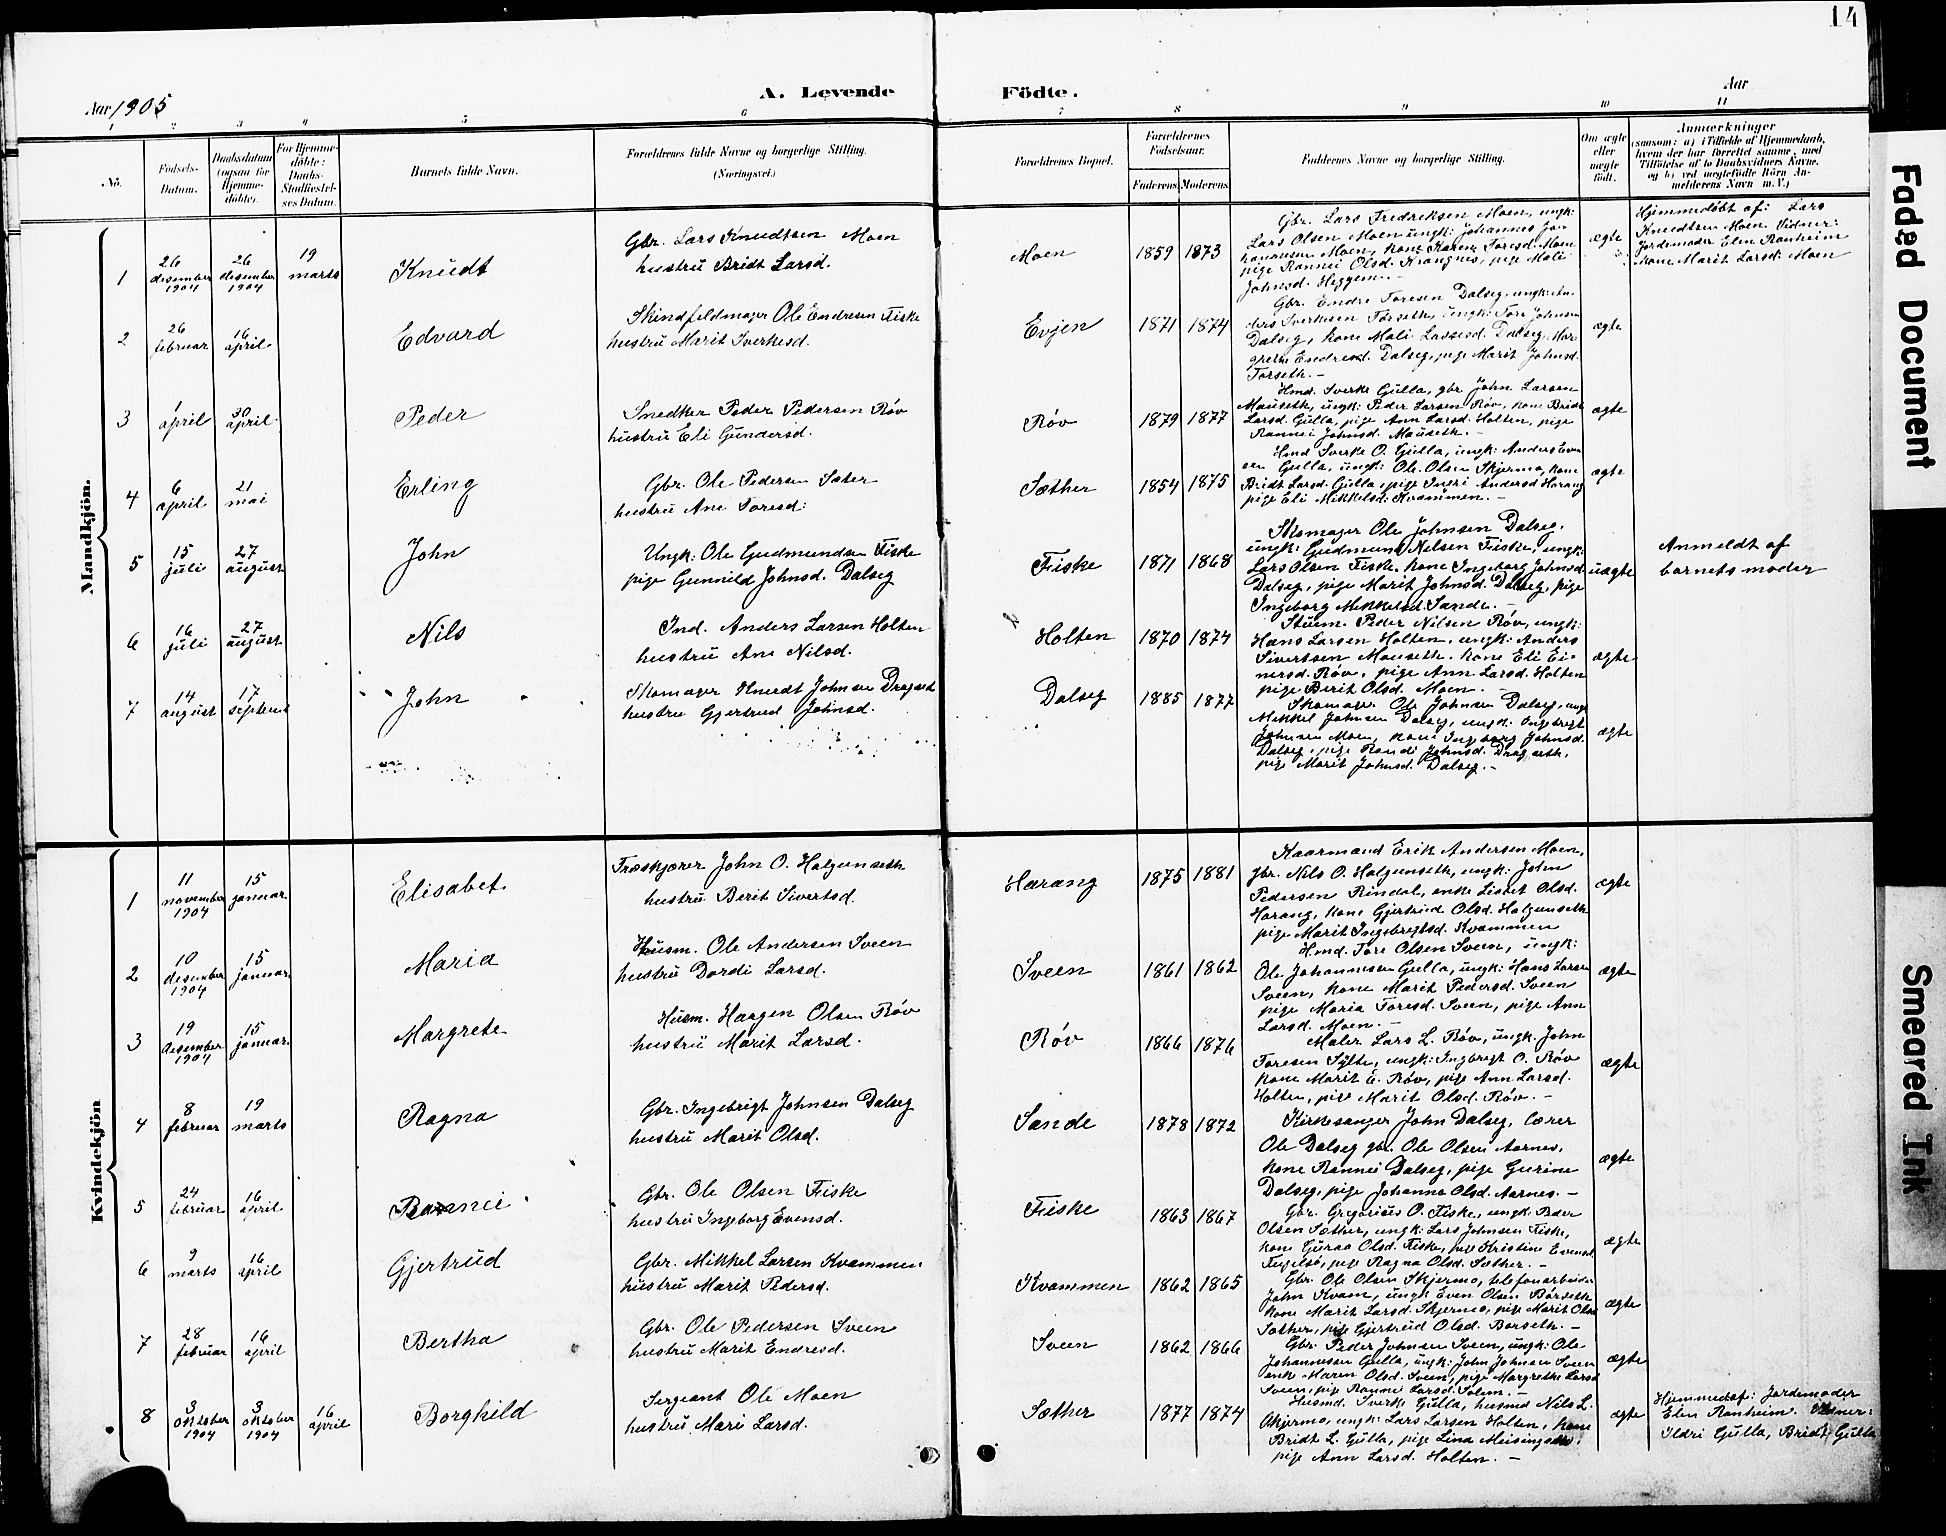 14
Aar 1905
A. Levende Födte.
Aar
1 2 3 4 5 6 7 8 9 10 11
No.
Födsels-Datum.
Daabsdatum (ogsaa for Hjemme-döbte).
For Hjemme-döbte: Daabs-Stadfæstel-ses Datum.
Barnets fulde Navn.
Forældrenes fulde Navne og borgerlige Stilling.
(Næringsvei.)
Forældrenes Bopæl.
Forældrenes Födselsaar.
Faderens Moderens
Faddernes Navne og borgerlige Stilling.
Om ægte eller uægte födt.
Anmærkninger
(saasom: a) i Tilfælde af Hjemmedaab, hvem der har forrettet samme, med Tilföielse af to Daabsvidners Navne, og b) ved uægtefödte Börn An-melderens Navn m.V.)
Mandkjön.
1
26 desember 1904
26 desember 1904
19 marts
Knudt
Gbr. Lars Knudtsen Moen
hustru Bridt Larsd.
Moen
1859 1873
Gbr. Lars Fredriksen Moen, ungk:
Lars Olsen Moen ungk: Johannes Jo
hannesen Moen, kone Karen Toresd. Moen
pige Rannei Olsd. Krangnes, pige Mali
Johnsd. Heggem. –
ægte
Hjemmedøbt af: Lars
Knudtsen Moen. Vidner:
Jordemoder Elen Ranheim
kone Marit Larsd. Moen
2
26 februar
16 april
Edvard
Skindfeldmager Ole Endresen Fiske
hustru Marit Sverkesd.
Evjen
1871 1874
Gbr. Endre Toresen Dalseg, ungk: An-
ders Sverkesen Torseth, ungk: Tore Johnsen
Dalseg, kone Mali Larsesd. Dalseg, Mar-
grethe Endresd. Dalseg, pige Marit Johnsd.
Torseth. –
ægte
3
1 april
30 april
Peder
Snedker Peder Pedersen Røv
hustru Eli Gundersd.
Røv
1879 1877
Hmd. Sverke Gulla, gbr. John Larsen
Mauseth, ungk: Peder Larsen Røv, kone Bridt
Larsd. Gulla, pige Ann Larsd. Holten, pige
Rannei Johnsd. Mauseth. –
ægte
4
6 april
21 mai
Erling
Gbr. Ole Pedersen Sæter
hustru Ane Toresd:
Sæther
1854 1875
Hmd Sverke O. Gulla, ungk: Anders Even
sen Gulla, ungk: Ole Olsen Skjermo, kone
Bridt Larsd. Gulla, pige Sneri Andersd Harang
pige Eli Mikkelsd: Kvammen. –
ægte
5
15 juli
27 august
John
Ungk: Ole Gudmundsen Fiske
pige Gunnild Johnsd. Dalseg
Fiske
1871 1868
Skomager Ole Johnsen Dalseg,
ungk: Gudmund Nilsen Fiske, ungk:
Lars Olsen Fiske, kone Ingeborg Johnsd
Dalseg, pige Marit Johnsd. Dalseg, pige
Ingeborg Mikkelsd. Sande. –
uægte
Anmeldt af
barnets moder
6
16 juli
27 august
Nils
Ind. Anders Larsen Holten
hustru Ane Nilsd.
Holten
1870 1874
Stuem. Peder Nilsen Røv, ungk:
Hans Larsen Holten, ungk: Anders
Sivertsen Mauseth, kone Eli Ei-
nersd. Røv, pige Ann Larsd. Holten
pige Berit Olsd. Moen. –
ægte
7
14 august
17 septemb
John
Skomager Knudt Johnsen Dragseth
hustru Gjertrud Johnsd.
Dalseg
1885 1877
Skomager Ole Johnsen Dalseg, ungk
Mikkel Johnsen Dalseg, ungk: Ingebrigt
Johnsen Moen, kone Ingeborg Johnsd.
Dalseg, pige Randi Johnsd. Dragseth,
pige Marit Johnsd. Dalseg. –
ægte
Kvindekjön
1
11 november 1904
15 januar
Elisabet
Træskjærer John O. Halgunseth
hustru Berit Sivertsd.
Harang
1875 1881
Kaarmand Erik Andersen Moen,
gbr. Nils O. Halgunseth, ungk: John
Pedersen Rindal, enke Lisbet Olsd.
Harang, kone Gjertrud Olsd. Halgunseth
pige Marit Ingebrigtsd. Kvammen
ægte
2
10 desember 1904
15 januar
Maria
Husm. Ole Andersen Sveen
hustru Dordi Larsd.
Sveen
1861 1862
Hmd. Tore Olsen Sveen, ungk:
Ole Johannesen Gulla, ungk: Hans Larsen
Sveen, kone Marit Pedersd. Sveen
pige Maria Toresd. Sveen, pige Ann
Larsd. Moen. –
ægte
3
19 desember 1904
15 januar
Margrete
Husm. Haagen Olsen Røv
hustru Marit Larsd.
Røv
1866 1876
Maler Lars L. Røv, ungk: John
Toresen Sylte, ungk: Ingbregt O. Røv
kone Marit E. Røv, pige Ann Larsd.
Holten, pige Marit Olsd. Røv. –
ægte
4
8 februar
19 marts
Ragna
Gbr. Ingebrigt Johnsen Dalseg
hustru Marit Olsd.
Sande
1878 1872
Kirkesanger John Dalseg, lærer
Ole Dalseg gbr. Ole Olsen Aarnes,
kone Rannei Dalseg, pige Gurine
Dalseg, pige Johanna Olsd. Aarnes. –
ægte
5
24 februar
16 april
Rannei
Gbr. Ole Olsen Fiske
hustru Ingeborg Evensd.
Fiske
1863 1867
Gbr. Gregorius O. Fiske, ungk: Peder
Olsen Sæther, ungk: Lars Johnsen Fiske,
kone Guraa Olsd. Fiske, pige Kristine Evensd.
Fugelsø, pige Ragna Olsd. Sæther. –
ægte
6
9 marts
16 april
Gjertrud
Gbr. Mikkel Larsen Kvammen
hustru Marit Pedersd.
Kvammen
1862 1865
Gbr. Ole Olsen Skjermo, telefonarbeider
John Kvam, ungk: Even Olsen Børseth
kone Marit Larsd. Skjermo, pige Marit Olsd
Sæther, pige Gjertrud Olsd. Børseth. –
ægte
7
28 februar
16 april
Bertha
Gbr. Ole Pedersen Sveen
hustru Marit Endresd.
Sveen
1862 1866
Gbr. Peder Johnsen Sveen, ungk: Ole
Johannesen Gulla, ungk: John Johnsen Sveen
enke Maren Olsd. Sveen, pige Margrethe Larsd
Sveen, pige Rannei Larsd. Solem. –
ægte
8
3 oktober 1904
3 oktober 1904
16 april
Borghild
Sergeant Ole Moen
hustru Mari Larsd.
Sæther
1877 1874
Husmd. Sverke Gulla, husmd Nils L.
Skjermo, ungk: Lars Larsen Holten, kone
Bridt L. Gulla, pige Lina Meisingseth,
pige Ann Larsd. Holten. –
ægte
Hjemmedaf: Jordemoder
Elen Ranheim. Vidner:
Ildri Gulla, Bridt Gulla
Faded Document
Smeared Ink